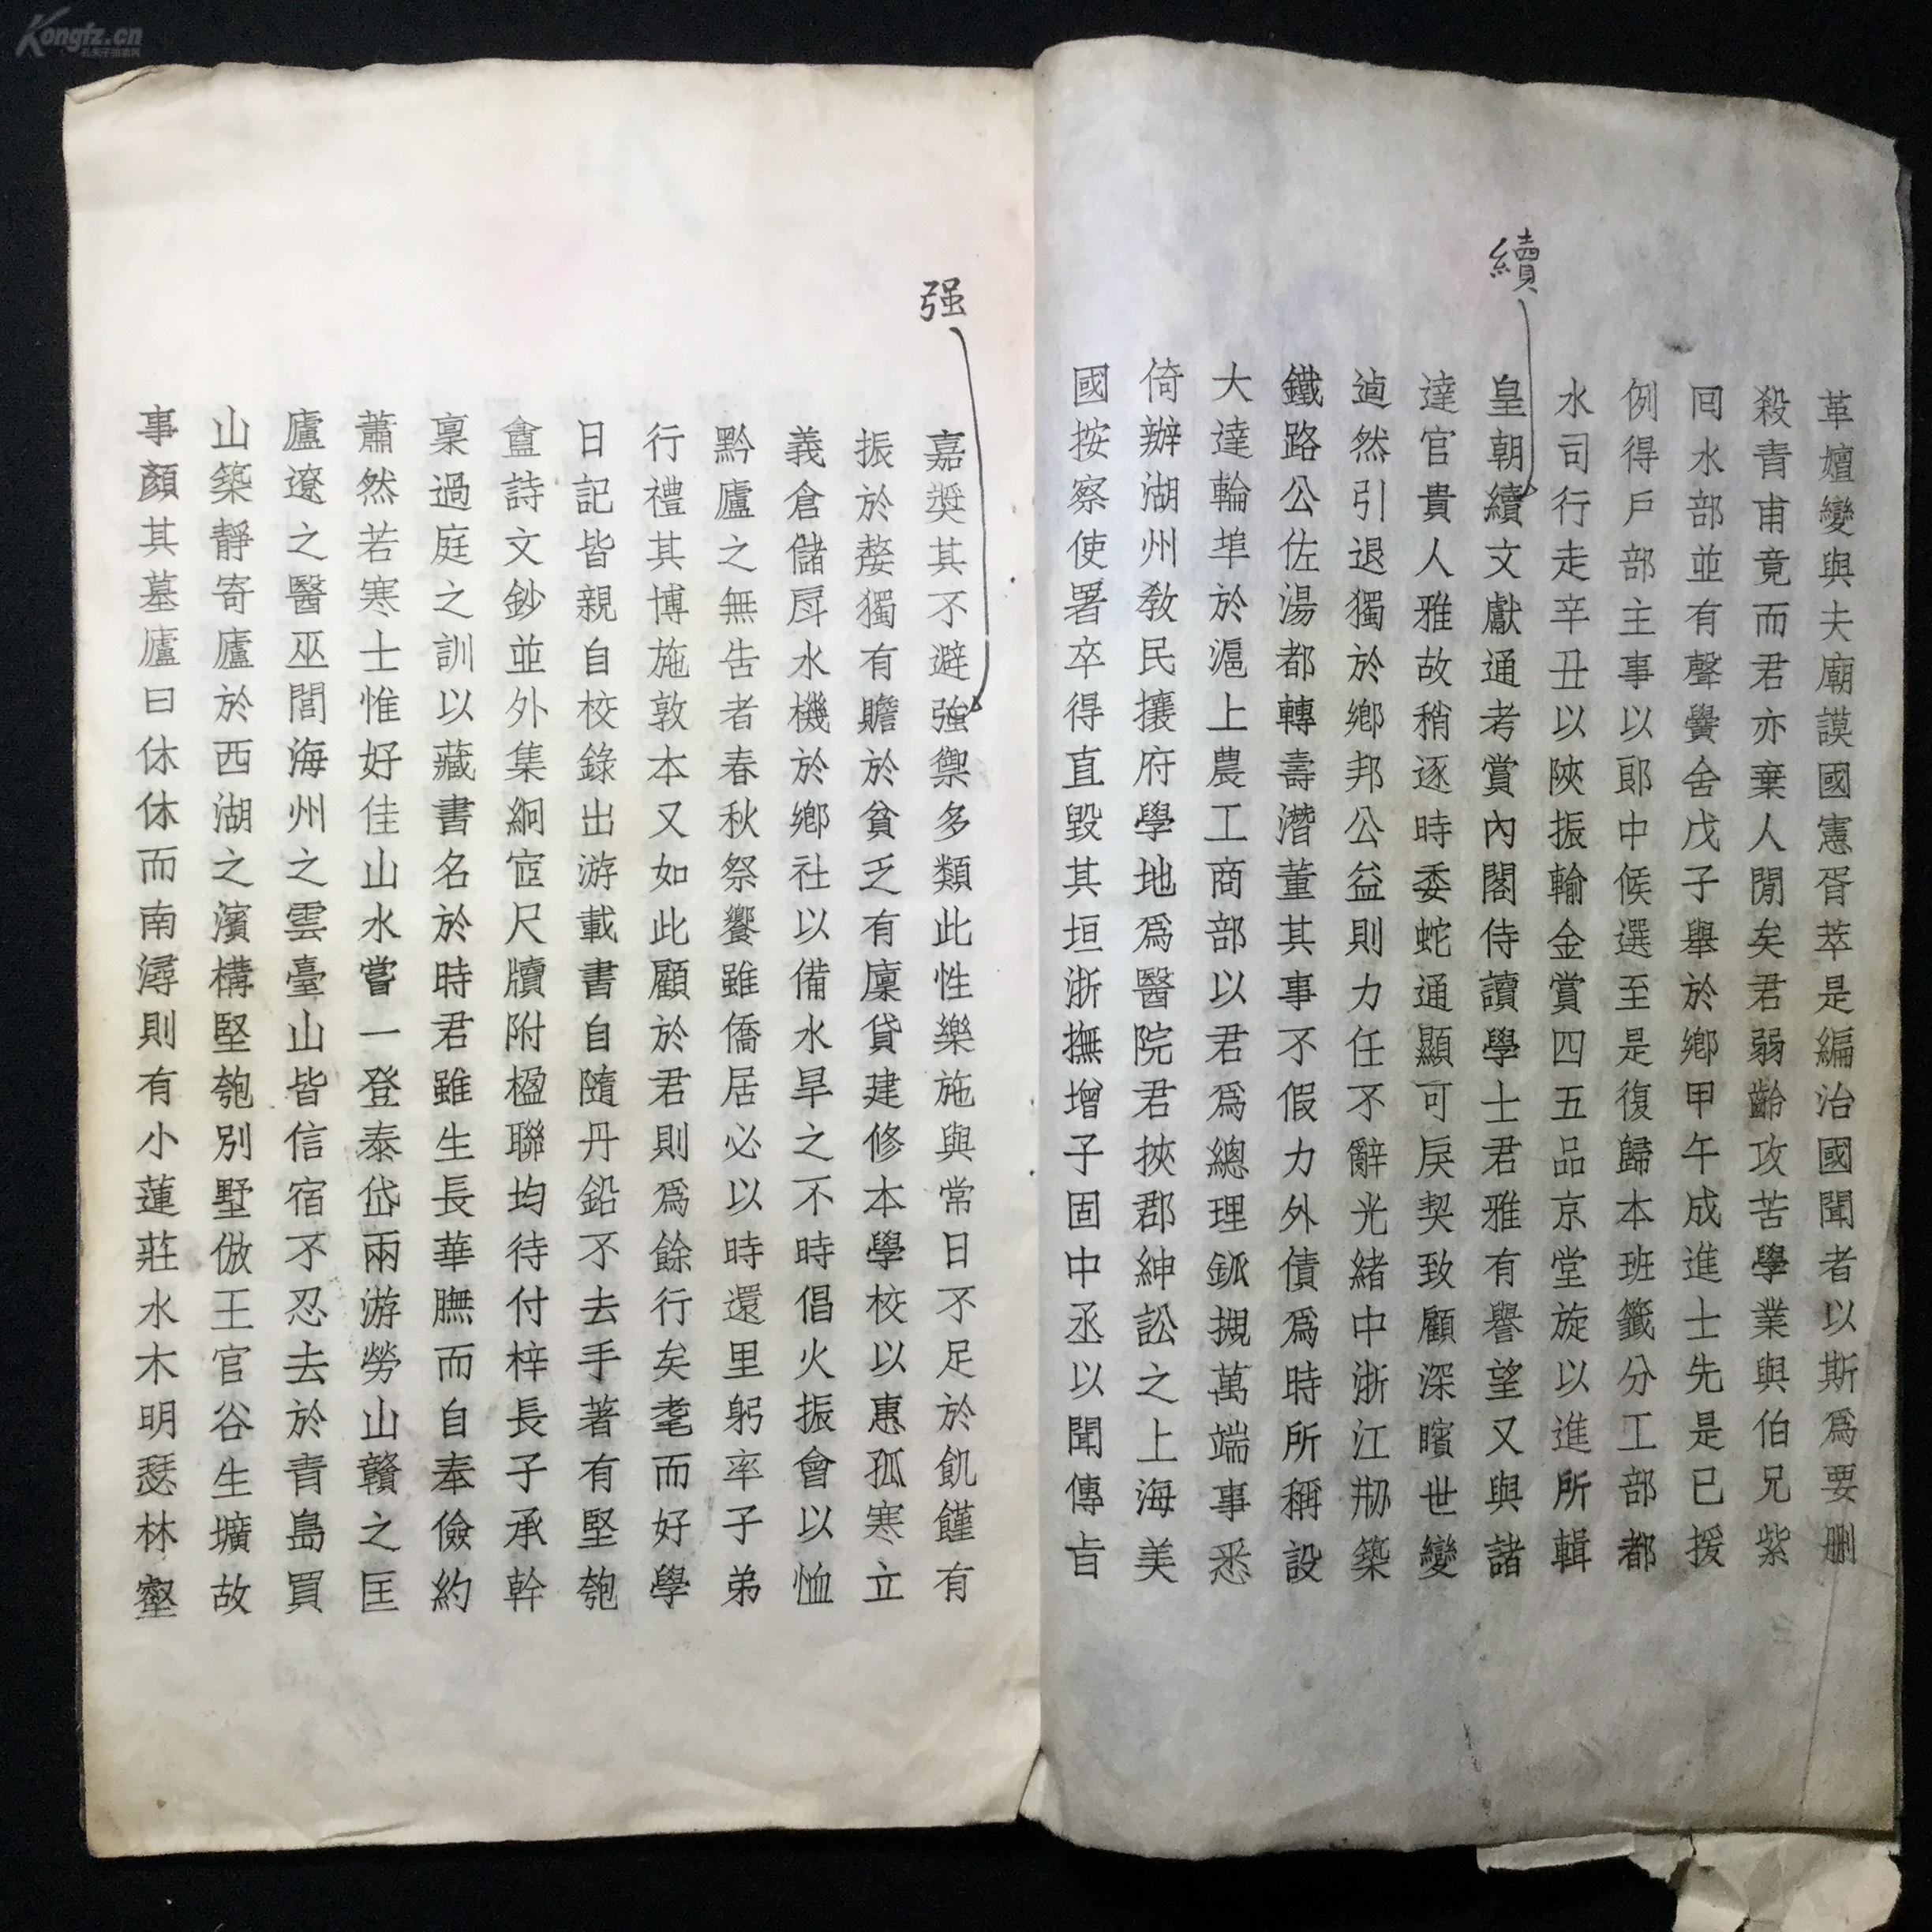 Kongfz.cn
孔夫子旧书网
續
革嬗變與夫廟謨國憲胥萃是編治國聞者以斯爲要删
殺青甫竟而君亦棄人閒矣君弱齡攻苦學業與伯兄紫
回水部並有聲黌舍戊子舉於鄉甲午成進士先是已援
例得戶部主事以郎中候選至是復歸本班籤分工部都
水司行走辛丑以陝振輸金賞四五品京堂旋以進所輯
皇朝續文獻通考賞內閣侍讀學士君雅有譽望又與諸
達官貴人雅故稍逐時委蛇通顯可戾契致顧深矉世變
逌然引退獨於鄉邦公益則力任不辭光緒中浙江剏築
鐵路公佐湯都轉壽潛董其事不假力外債爲時所稱設
大達輪埠於滬上農工商部以君爲總理鈲摫萬端事悉
倚辦湖州教民攘府學地爲醫院君挾郡紳訟之上海美
國按察使署卒得直毀其垣浙撫增子固中丞以聞傳旨
强
嘉奬其不避強禦多類此性樂施與常日不足於飢饉有
振於嫠獨有贍於貧乏有廩貸建修本學校以惠孤寒立
義倉儲戽水機於鄉社以備水旱之不時倡火振會以恤
黔廬之無告者春秋祭饗雖僑居必以時還里躬率子弟
行禮其博施敦本又如此顧於君則爲餘行矣耄而好學
日記皆親自校錄出游載書自隨丹鉛不去手著有堅匏
盦詩文鈔並外集絅宧尺牘附楹聯均待付梓長子承幹
稟過庭之訓以藏書名於時君雖生長華膴而自奉儉約
蕭然若寒士惟好佳山水嘗一登泰岱兩游勞山贛之匡
廬遼之醫巫閭海州之雲臺山皆信宿不忍去於青島買
山築靜寄廬於西湖之濱構堅匏別墅倣王官谷生壙故
事顏其墓廬曰休休而南潯則有小蓮莊水木明瑟林壑